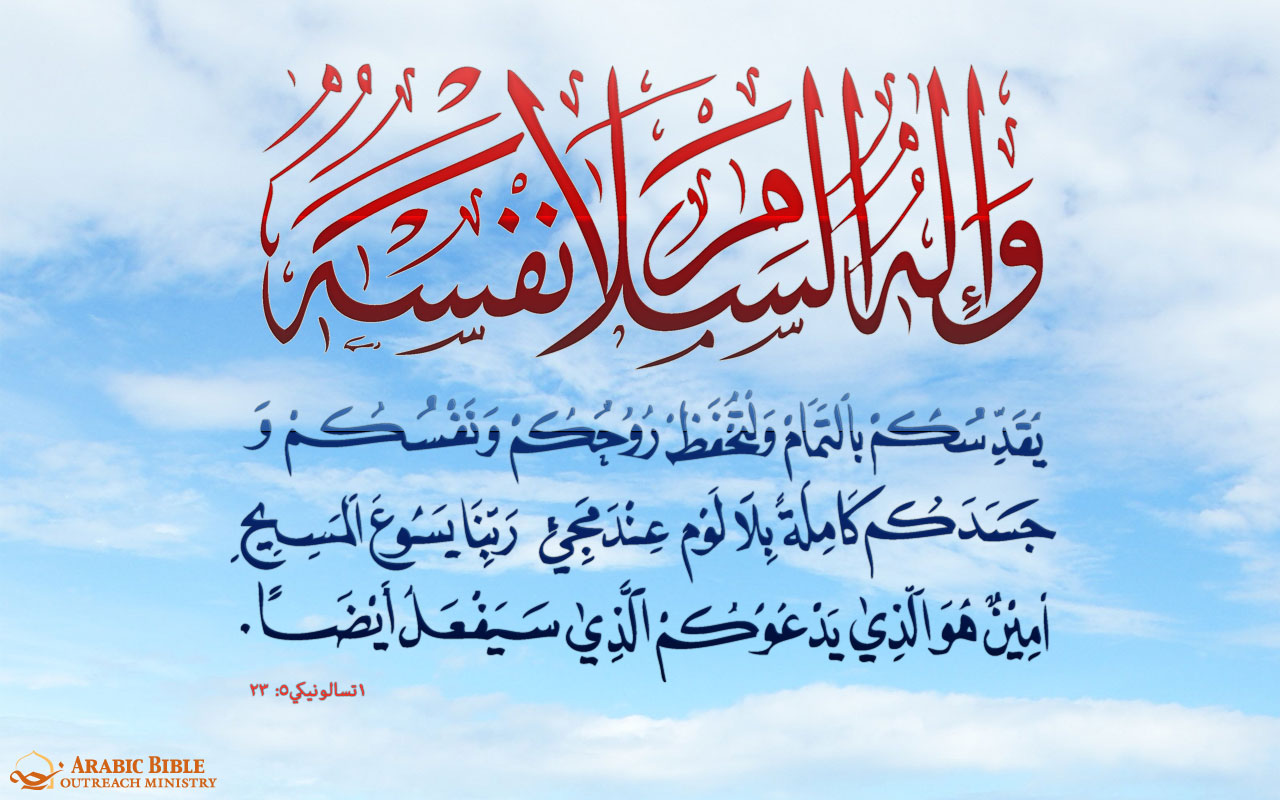 وَإِلهُ السَّلاَمِ نَفْسُهُ
يُقَدِّسُكُمْ بِالتَّمَامْ وَلْتُحْفَظْ رُوْحُكُمْ وَنَفْسُكُمْ وَ
جَسَدَكُم كَامِلَةً بِلاَ لَوْمٍ عِنْدَ مَجِيْءِ رَبِّنَا يَسُوعَ الْمَسِيحِ
امِيْنٌ هُوَ الَّذِي يَدْعُوكُمْ الَّذِي سَيَفْعَلُ أَيْضَاً.
١تسالونيكي٥: ٢٣
ARABIC BIBLE
OUTREACH MINISTRY